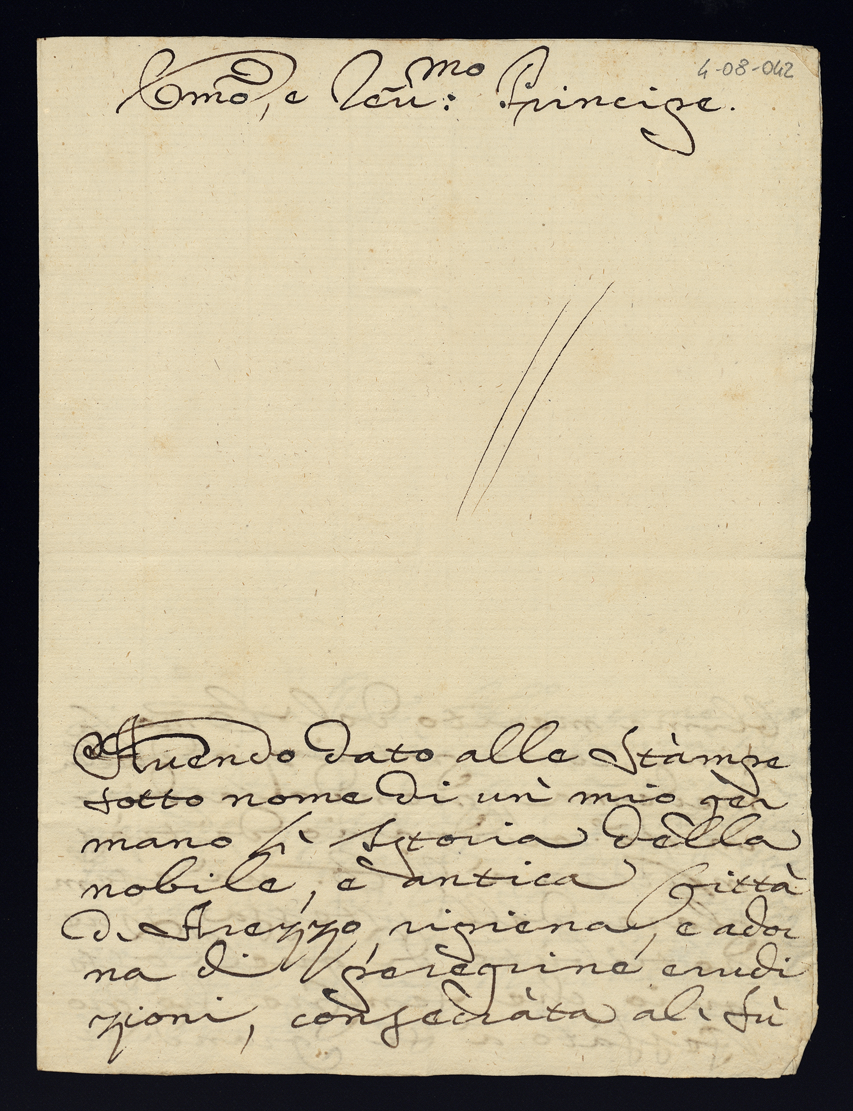 4-08-042
Emo, e Reu:mo Principe.
Auendo dato alle Stàmpe
sotto nome di un mio ger
mano l' Istoria della
nobile, è antica Città
di Arezzo, ripiena, e ador
na di peregrine erudi
zioni, consecràta al Sù